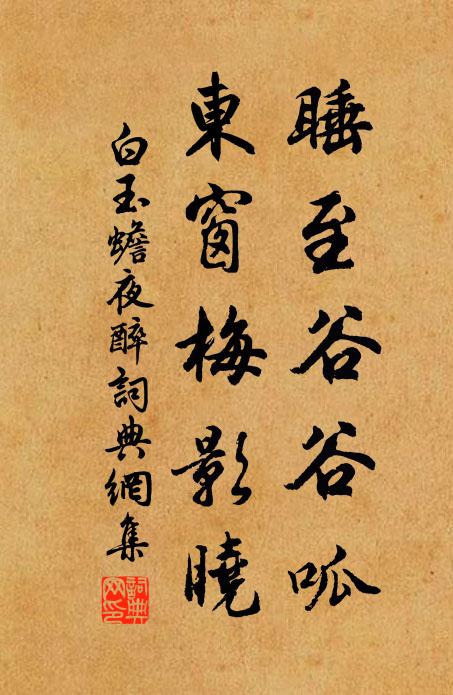 睡至谷谷呱
東窗梅影曉
白玉蟾夜醉詞典網集
詞典网印